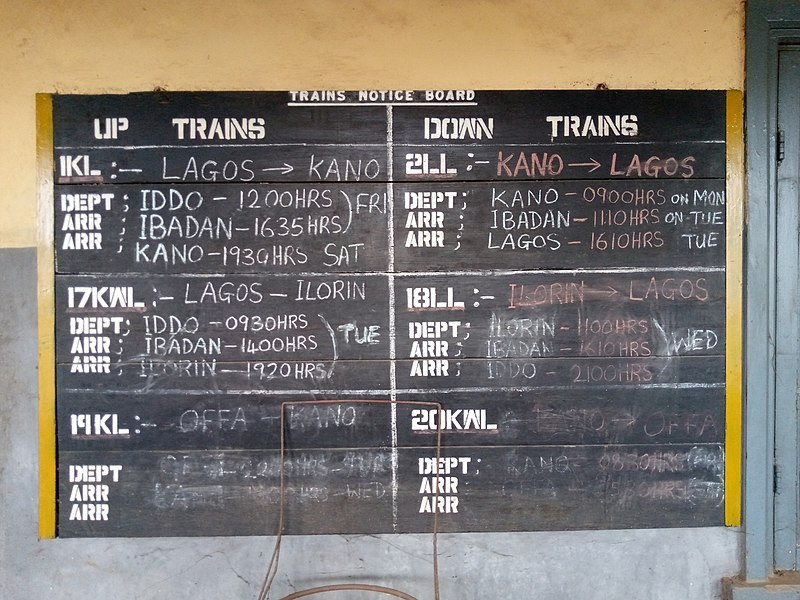 TRAINS NOTICE BOARD
UP TRAINS
1KL :- LAGOS → KANO
DEPT ; IDDO - 1200HRS ) FRI
ARR ; IBADAN - 1635HRS
ARR ; KANO - 1930HRS SAT
17KWL :- LAGOS - ILORIN
DEPT ; IDDO - 0930HRS
ARR ; IBADAN - 1400HRS ) TUE
ARR ; ILORIN - 1920HRS
19KL :- OFFA - KANO
DEPT
ARR WED
ARR
DOWN TRAINS
2LL :- KANO → LAGOS
DEPT ; KANO - 0900HRS ON MON
ARR ; IBADAN - 1110HRS ON TUE
ARR ; LAGOS - 1610HRS TUE
18LL :- ILORIN → LAGOS
DEPT ; ILORIN - 1100HRS
ARR ; IBADAN - 1610HRS ) WED
ARR ; IDDO - 2100HRS
20KWL → OFFA
DEPT ; KANO -
ARR
ARR